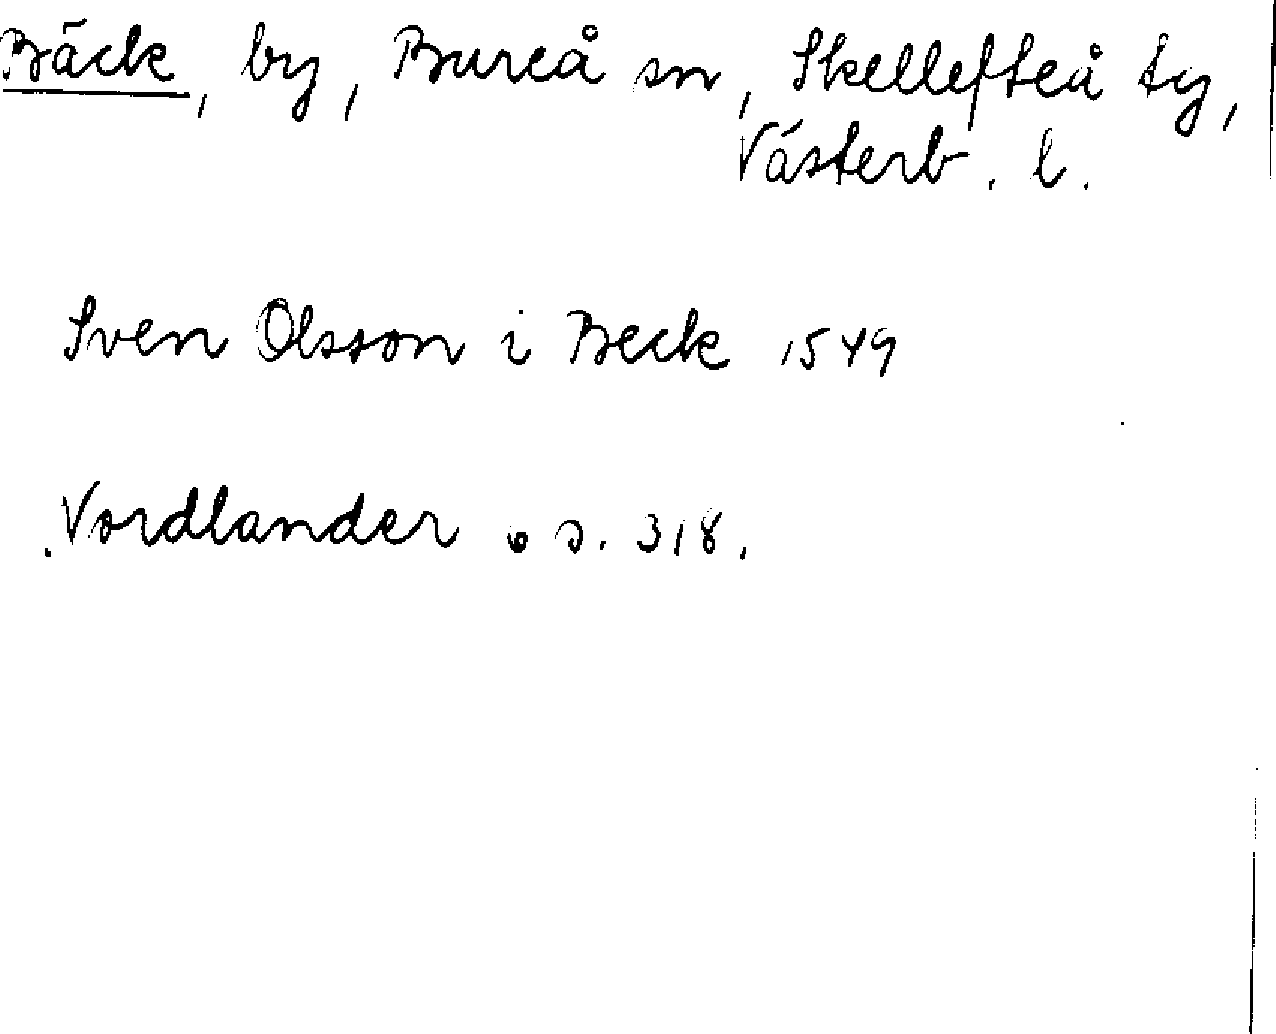 Bäck, by, Bureå sn, Skellefteå tg,
Västerb. l.
Sven Olsson i Beck 1549
Nordlander s. 318.